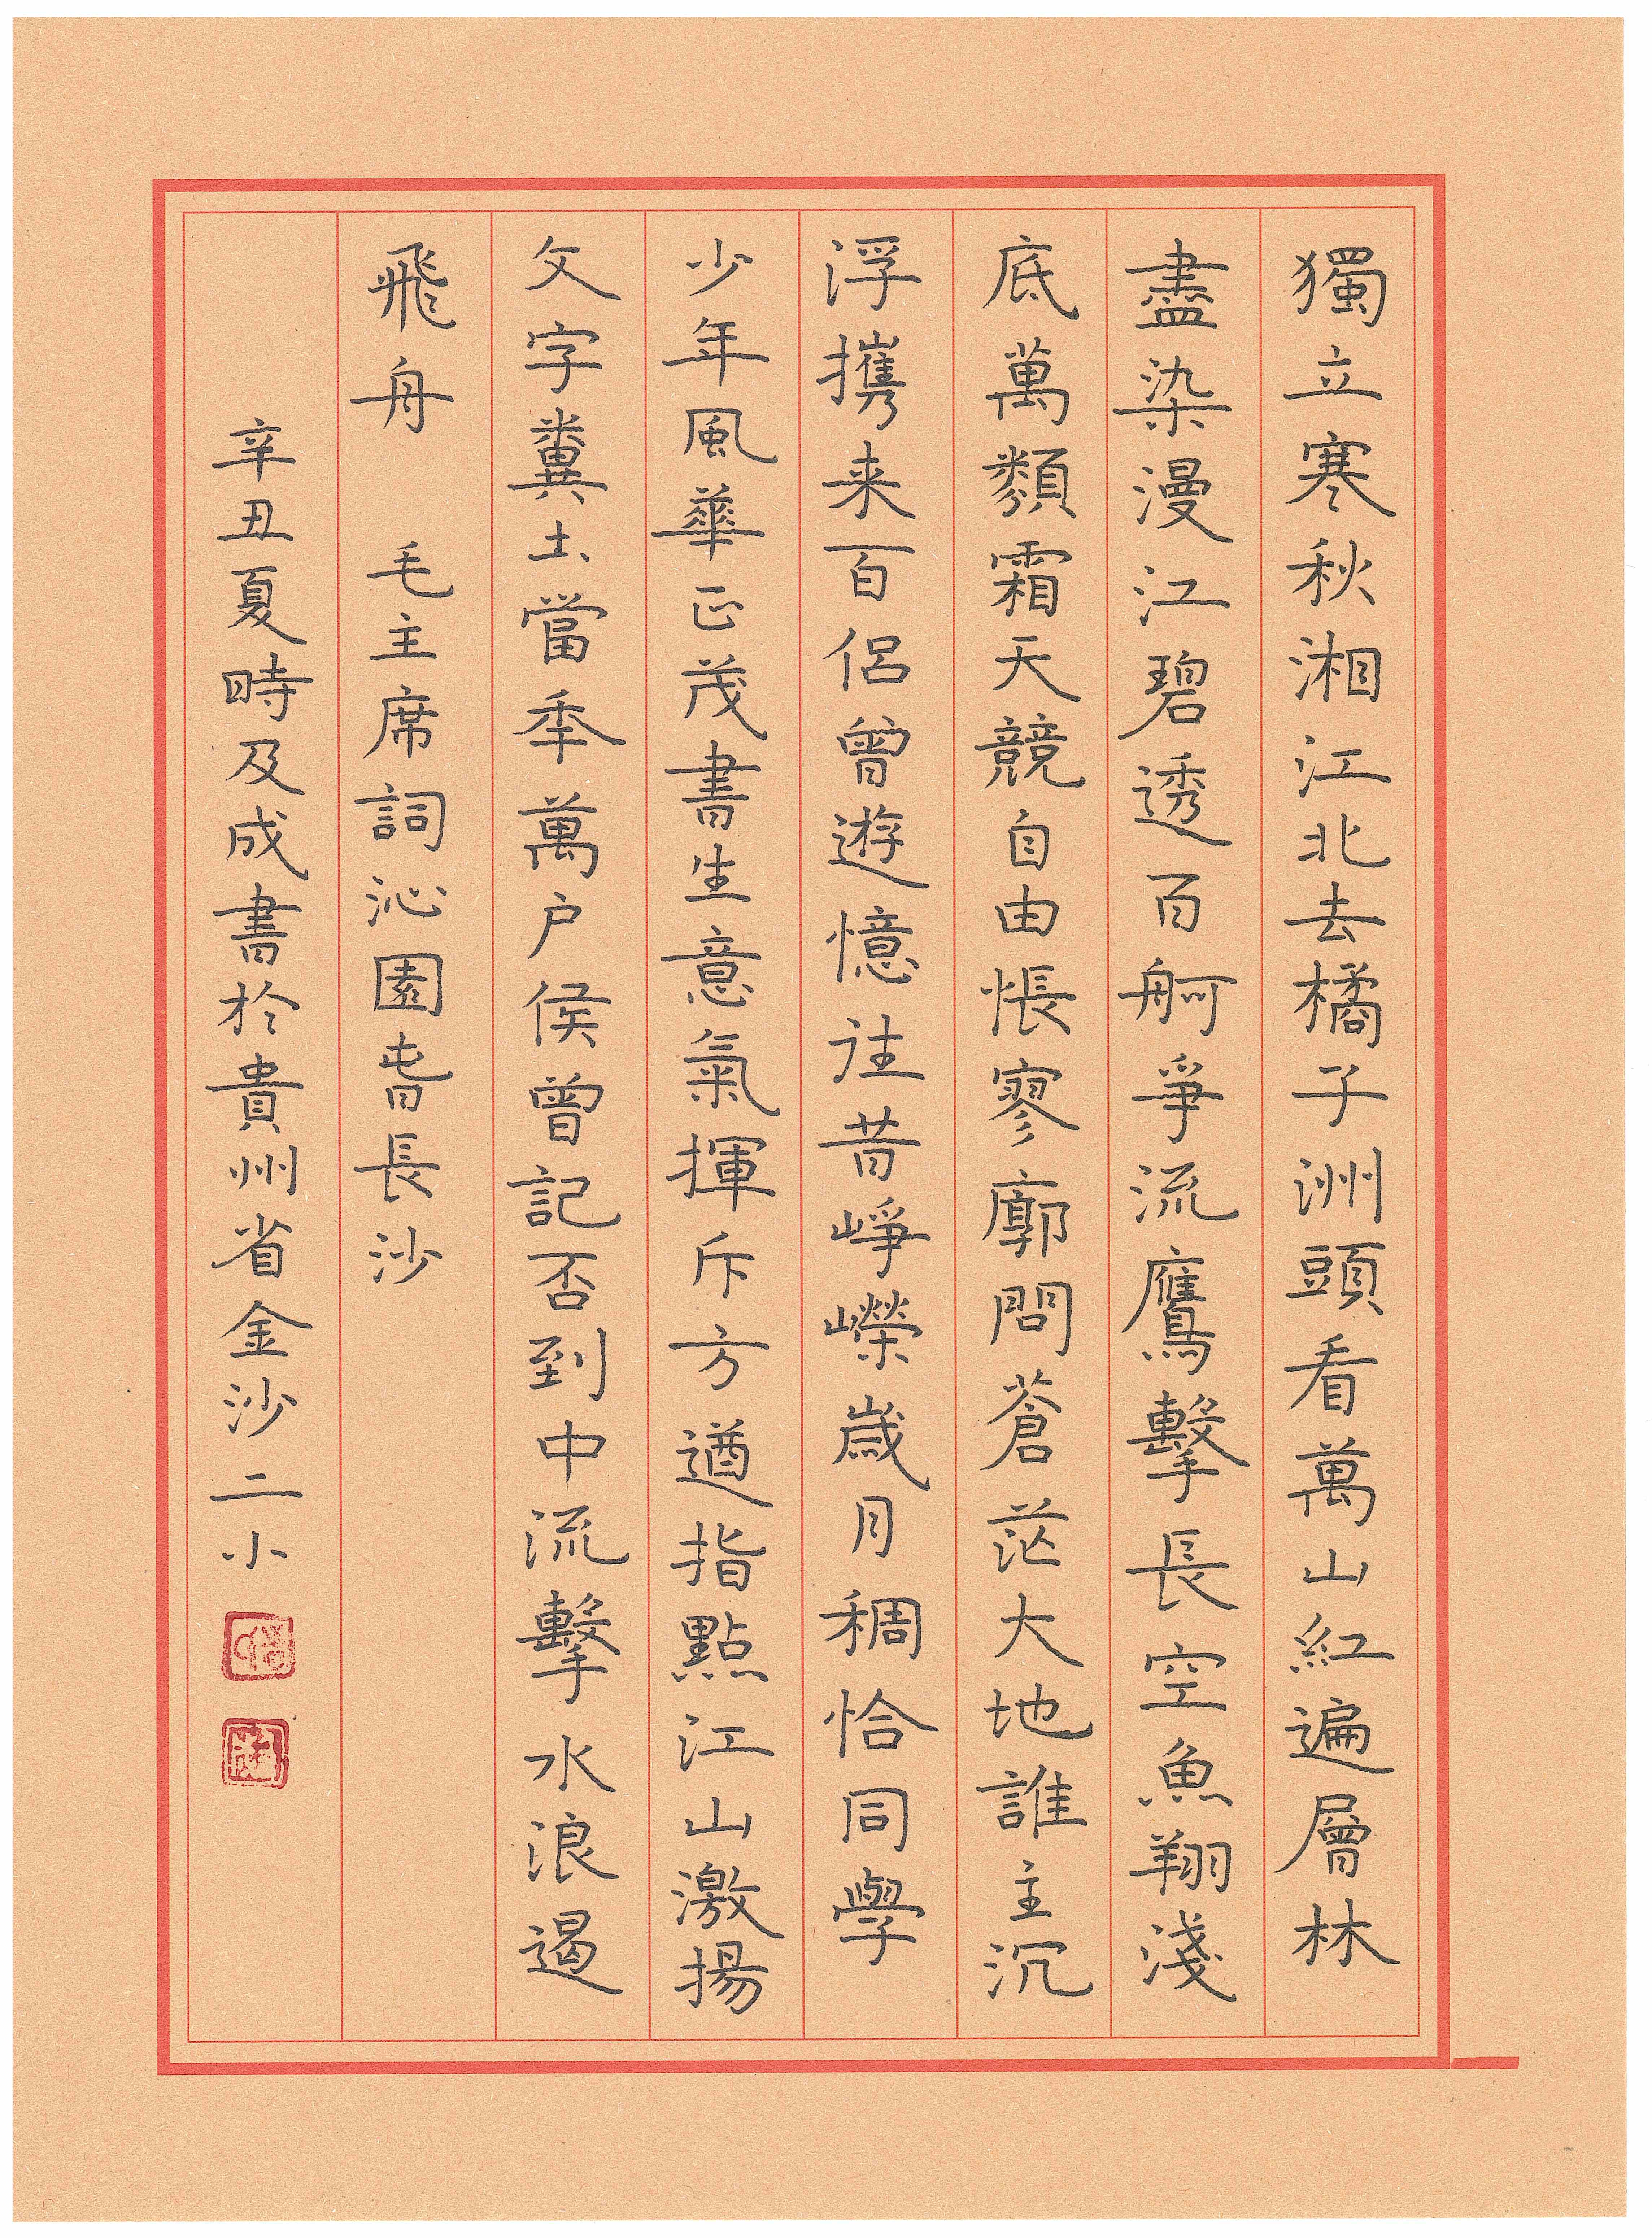 獨立寒秋湘江北去橘子洲頭看萬山紅遍層林
盡染漫江碧透百舸爭流鷹擊長空魚翔淺
底萬類霜天競自由悵寥廓問蒼茫大地誰主沉
浮攜来百侶曾遊憶往昔崢嶸歲月稠恰同學
少年風華正茂書生意氣揮斥方遒指點江山激揚
文字糞土當年萬户侯曾記否到中流擊水浪遏
飛舟 毛主席詞沁園春長沙
辛丑夏時及成書於貴州省金沙二小